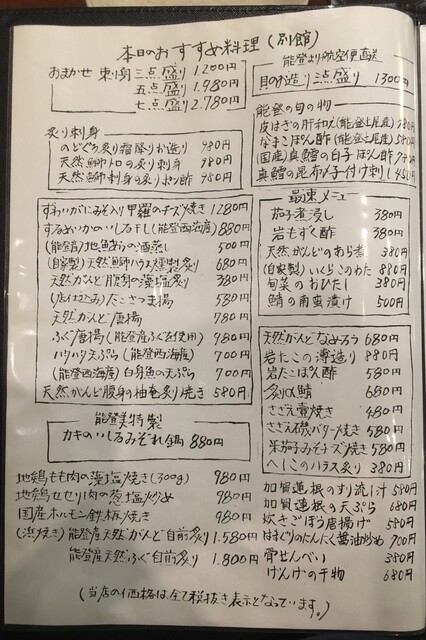 本日のおすすめ料理(別館)
おまかせ 刺身 三点盛り 1.200円
五点盛り 1.980円
七点盛り 2.780円
能登より航空便直送
貝のお造り 三点盛り 1300円
炙り刺身
のどぐろ炙り霜降りお造り 980円
天然鰤トロの炙り刺身 980円
天然鰤刺身の炙りポン酢 980円
能登の旬の物
皮はぎの肝和え(能登七尾産)
なまこぽん酢(能登七尾産)
国産真鱈の白子ぽん酢
真鱈の昆布〆子付け刺し
ずわいがにみそ入り甲羅のチーズ焼き 1280円
するめいかのいしる干し(能登西海産) 880円
(能登産)地魚あらの酒蒸し 500円
(自家製)天然鰤ハラス燻製炙り 680円
天然がんど腹身の藻塩焼き 380円
(店仕込み)たこさつま揚 580円
天然がんど唐揚 580円
ふぐ唐揚(能登産ふぐを使用) 980円
ハチハチ天ぷら(能登西海産) 700円
(能登西海産)白身魚の天ぷら 700円
天然がんど腹身の柚庵炙り焼き 580円
最速メニュー
茄子煮浸し 380円
岩もずく酢 380円
天然がんどのあら煮 380円
(自家製)いくらこのわた 880円
旬菜のおひたし 380円
鯖の南蛮漬け 500円
天然がんどなめろう 680円
岩たこの薄造り 880円
岩たこぽん酢 580円
炙り〆鯖 680円
さざえ壷焼き 480円
さざえ磯バター焼き 580円
米茄子みそチーズ焼き 580円
へしこのハラス炙り 380円
能登美特製
カキのいしるみぞれ鍋 880円
地鶏もも肉の藻塩焼き(300g) 980円
地鶏セセリ肉の葱塩炒め 980円
国産ホルモン鉄板焼き 980円
(浜焼き)能登産天然がんど自前炙り 1.580円
能登産天然ふぐ自前炙り 1.800円
加賀蓮根のすり流し汁 580円
加賀蓮根の天ぷら 680円
炊きごぼう唐揚げ 580円
はまぐりのにんにく醤油炒め 700円
骨せんべい 380円
げんげの干物 680円
(当店の価格は全て税抜き表示となっています。)